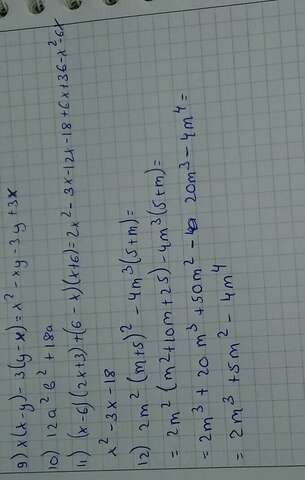 9) x(x-y)-3(y-x)=x²-xy-3y+3x
10) 12a²b²+18a
11) (x-6)(2x+3)+(6-x)(x+6)=2x²-3x-12x-18+6x+36-x²-6x
x²-3x-18
12) 2m²(m+5)²-4m³(5+m)=
=2m²(m²+10m+25)-4m³(5+m)=
=2m³+20m³+50m²-20m³-4m⁴=
=2m³+5m²-4m⁴